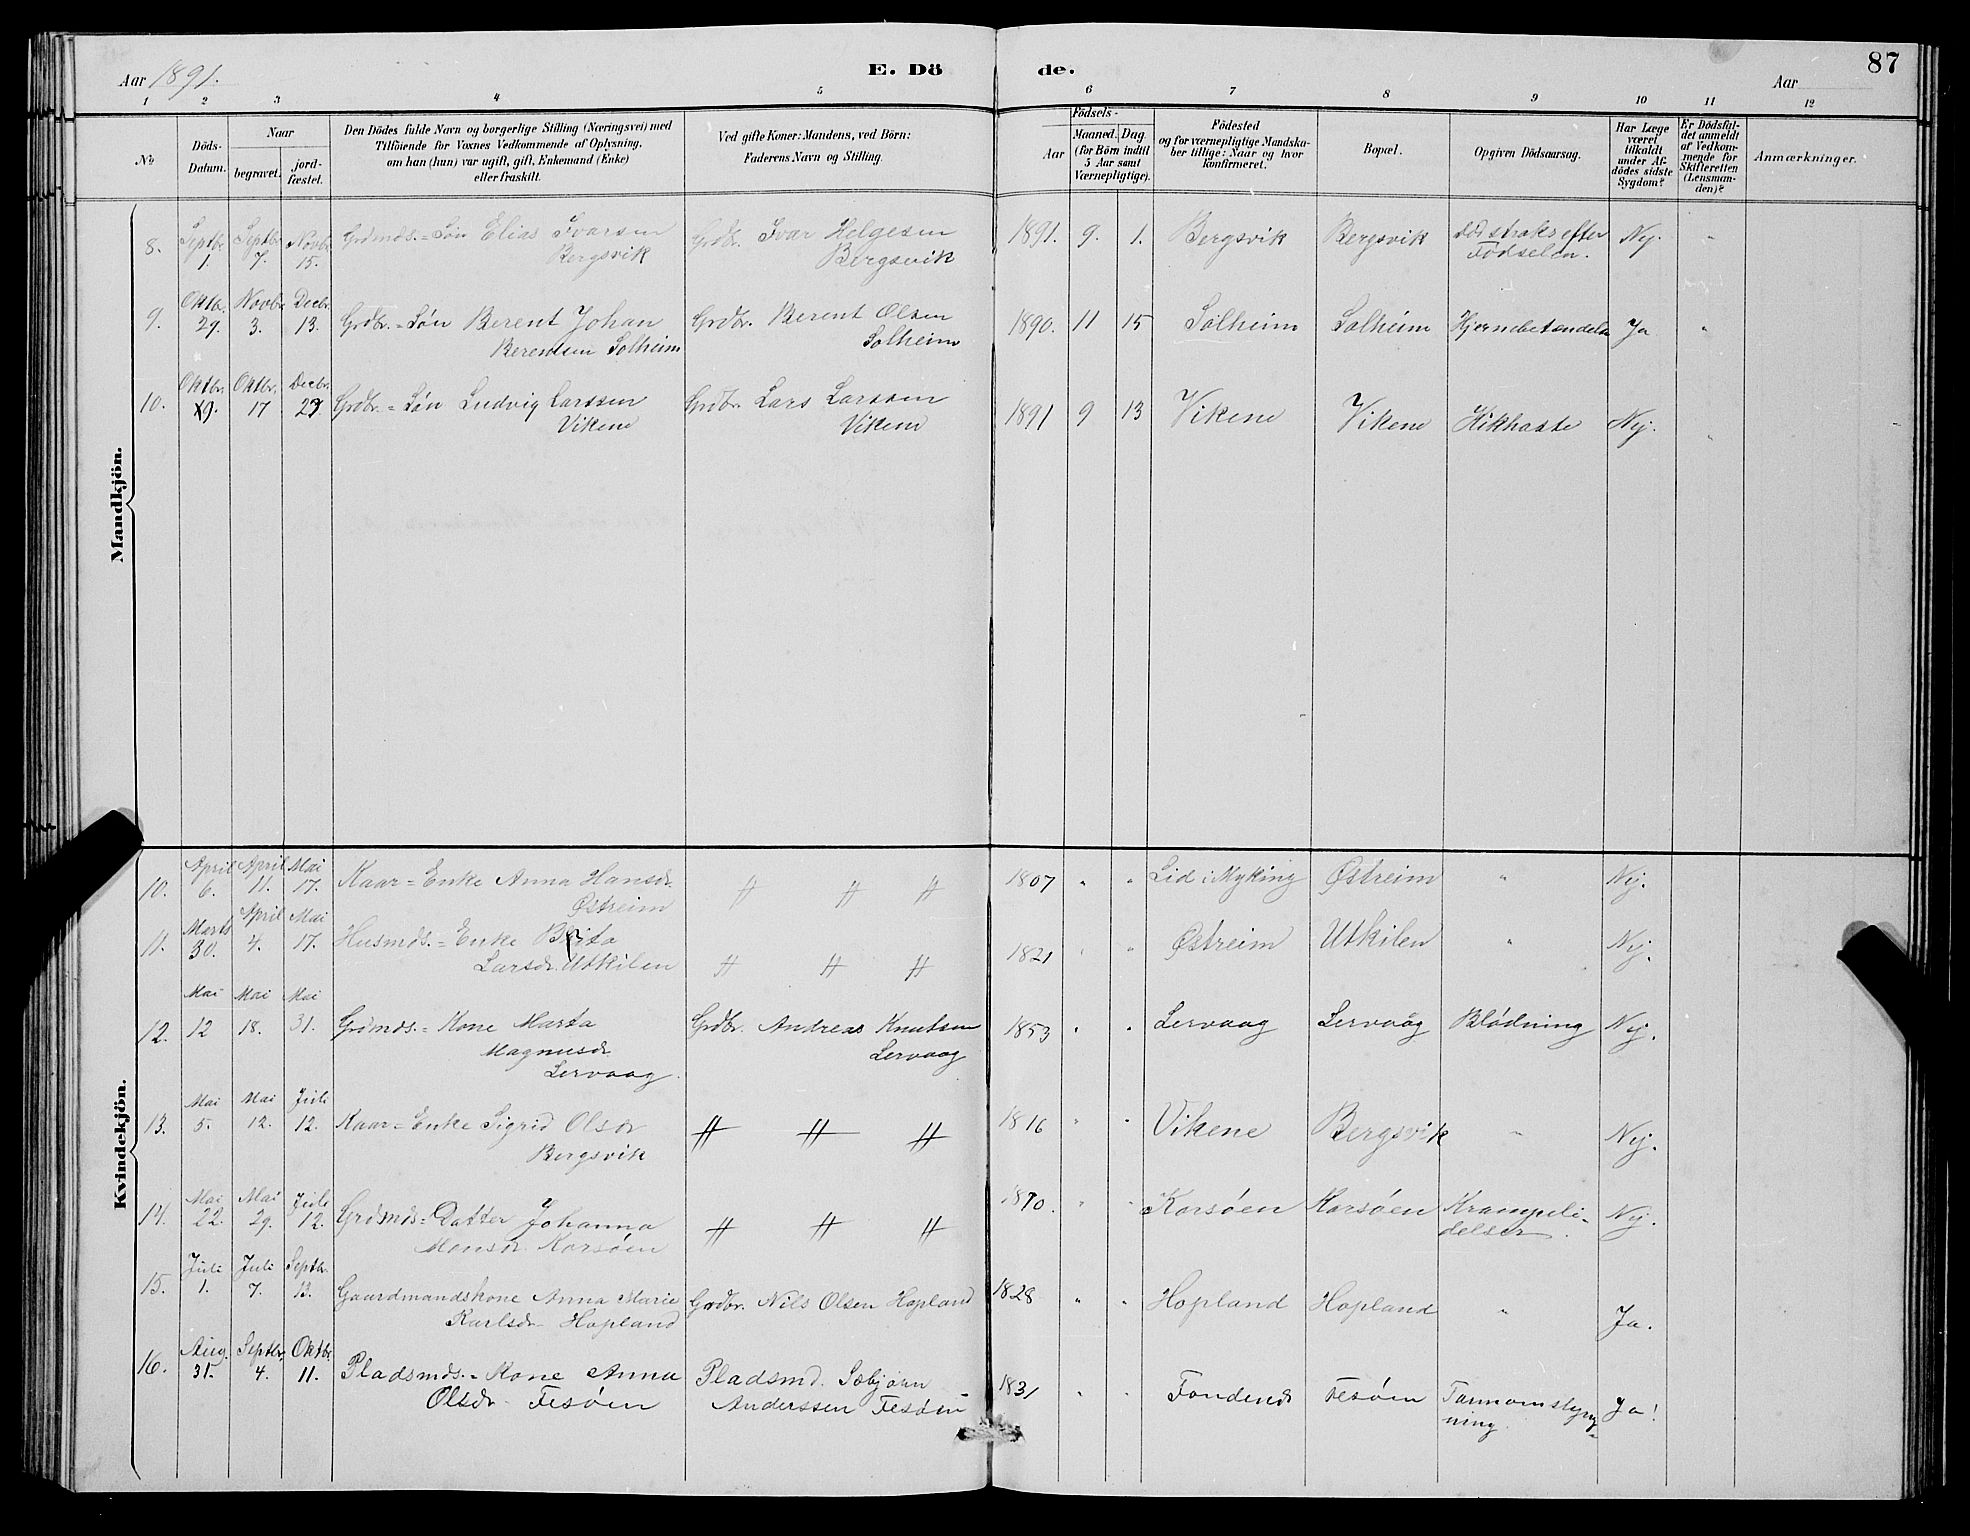 Aar 1891.
E. Dö
de.
Aar
87
1 2 3 4 5 6 7 8 9 10 11 12
No
Döds-
Datum.
Naar
begravet.
jord-
fæstet.
Den Dödes fulde Navn og borgerlige Stilling (Næringsvei) med
Tilföiende for Voxnes Vedkommende af Oplysning,
om han (hun) var ugift, gift, Enkemand (Enke)
eller fraskilt.
Ved gifte Koner: Mandens, ved Börn:
Faderens Navn og Stilling.
Födsels-
Aar
Maaned. Dag.
(for Börn indtil
5 Aar samt
Værnepligtige).
Födested
og for værnepligtige Mandska-
ber tillige: Naar og hvor
konfirmeret.
Bopæl.
Opgiven Dödsaarsag.
Har Læge
været
tilkaldt
under Af-
dödes sidste
Sygdom?
Er Dödsfal-
det anmeldt
af Vedkom-
mende for
Skifteretten
(Lensman-
den)?
Anmærkninger.
Mandkjön.
8. Septbr. 1. Septbr. 7. Novbr. 15. Grdmds.=Søn Elias Ivarsen
Bergsvik
Grdbr. Ivar Helgesen
Bergsvik
1891. 9. 1. Bergsvik Bergsvik död straks efter
Födselen. Nej. "
9. Oktbr. 29. Novbr. 3. Decbr. 13. Grdbr.=Søn Berent Johan
Berentsen Solheim
Grdbr. Berent Olsen
Solheim
1890. 11 15 Solheim Solheim Hjernebetændelse Ja "
10. Oktbr. 9. Oktbr. 17 Decbr. 27 Grdbr.=Søn Ludvig Larssen
Vikene
Grdbr. Lars Larssen
Vikene
1891 9 13 Vikene Vikene Kikhoste Nej. "
Kvindekjön.
10. April 6. April 11. Mai 17. Kaar=Enke Anna Hansdr.
Østreim
〃 〃 〃
1807 " " Lid i Myking Østreim " Nej.
11. Marts 30. April 4. Mai 17. Husmds.=Enke Brita
Larsdr. Utkilen
〃 〃 〃
1821 " " Østreim Utkilen " Nej.
12. Mai 12 Mai 18. Mai 31. Grdmds.=Kone Marta
Magnusdr.
Lervaag.
Grdbr. Andreas Knutsen
Lervaag
1853 " " Lervaag Lervaag Blödning Nej.
13. Mai 5. Mai 12. Juli 12. Kaar=Enke Sigrid Olsdr
Bergsvik
〃 〃 〃
1816 " " Vikene Bergsvik " Nej.
14. Mai 22. Mai 29. Juli 12. Grdmds=Datter Johanna
Monsdr. Korsøen
〃 〃 〃
1870. " " Korsøen Korsøen Krampeli-
delser. Nej.
15. Juli 1. Juli 7. Septbr. 13. Gaardmandskone Anna Marie
Karlsdr. Hopland
Grdbr. Nils Olsen Hopland
1828 " " Hopland Hopland " Ja.
16. Aug. 31. Septbr. 4. Oktbr. 11. Pladsmds.=Kone Anna
Olsdr. Fesøen
Pladsmd. Sæbjørn
Anderssen Fesøen
1831 " " Fondenes Fesøen Tarmomslyng-
ning. Ja!